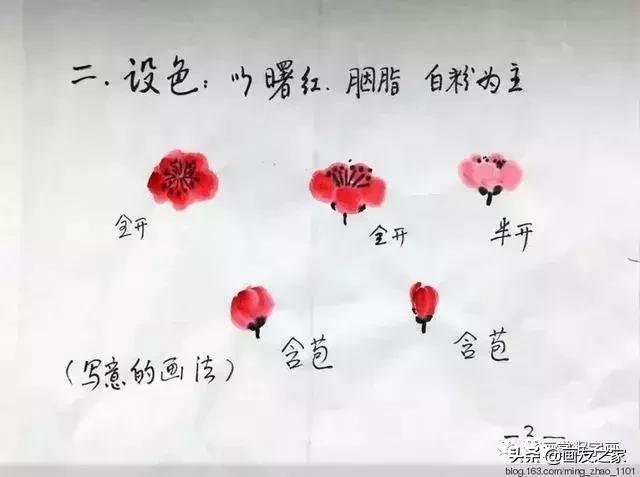 二.设色:以曙红.胭脂 白粉为主
全开
全开
半开
含苞
含苞
(写意的画法)
—2—
头条@画友之家
blog.163.com/ming_zhao_1101